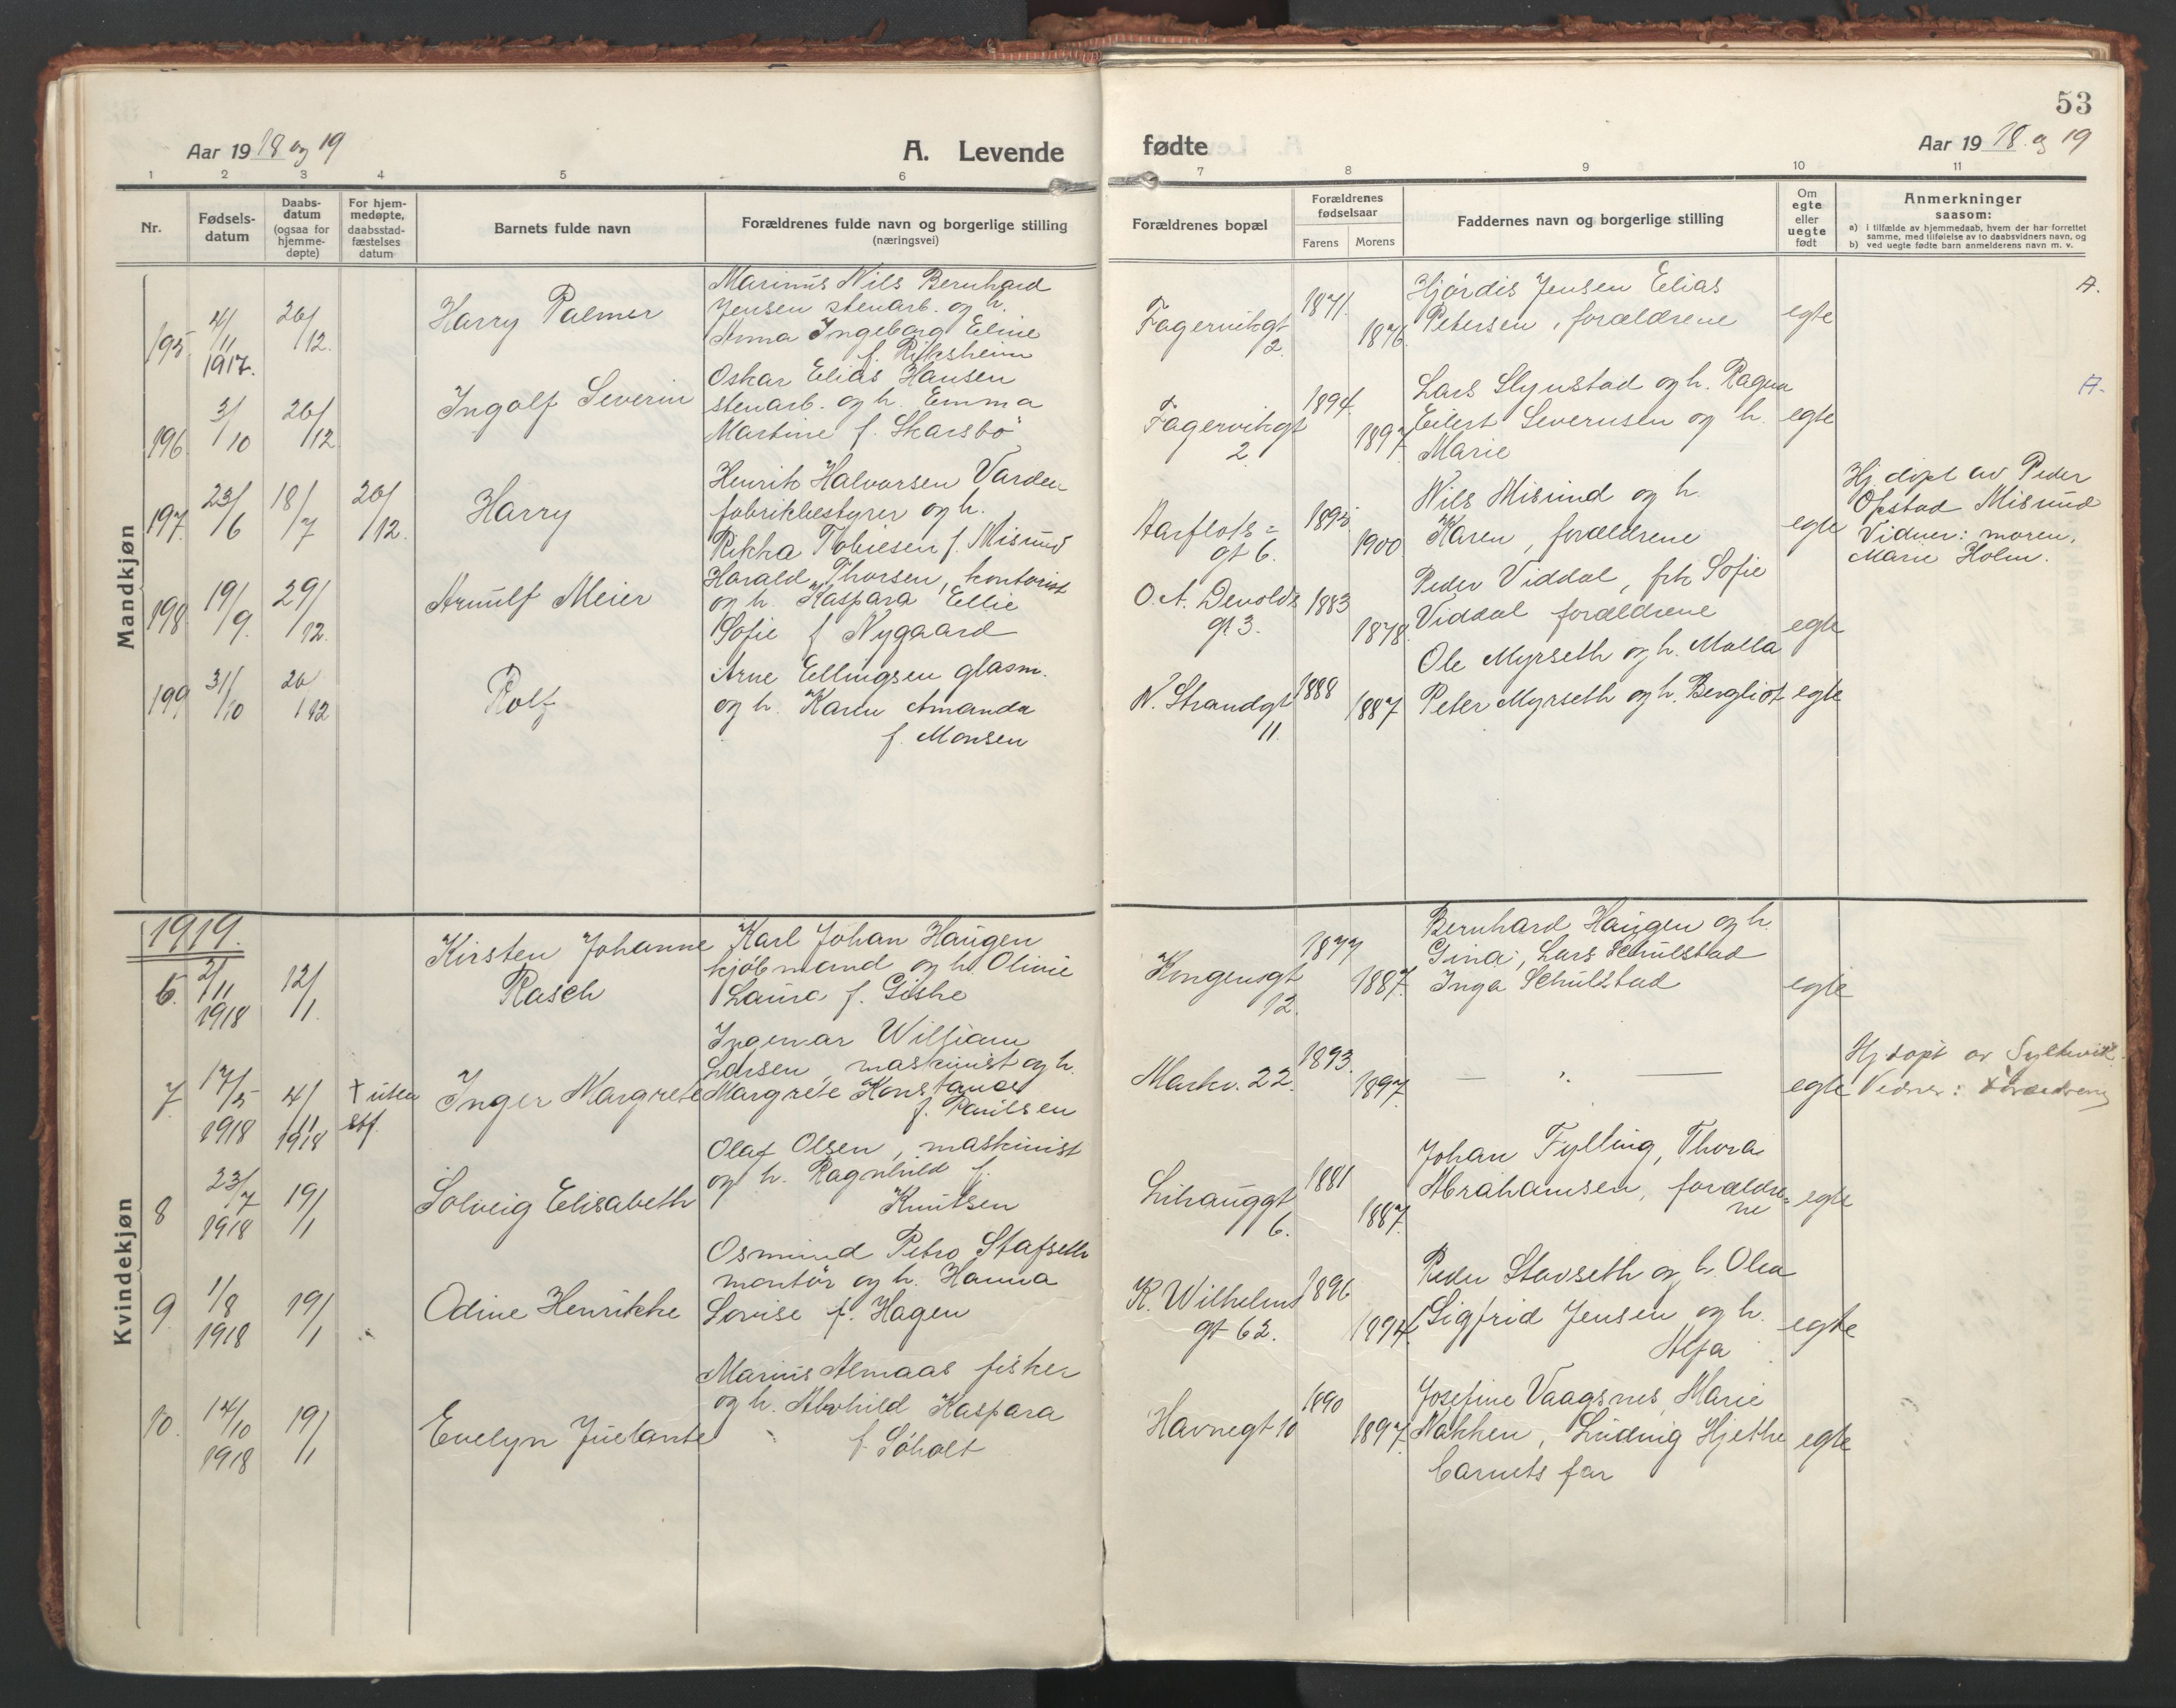 53
Aar 19 18 og 19
A. Levende
fødte
Aar 19 18. og 19
1 2 3 4 5 6 7 8 9 10 11
Nr.
Fødsels-
datum
Daabs-
datum
(ogsaa for
hjemme-
døpte)
For hjem-
medøpte,
daabsstad-
fæstelses
datum
Barnets fulde navn
Forældrenes fulde navn og borgerlige stilling
(næringsvei)
Forældrenes bopæl
Forældrenes
fødselsaar
Farens Morens
Faddernes navn og borgerlige stilling
Om
egte
eller
uegte
født
Anmerkninger
saasom:
a) i tilfælde av hjemmedaab, hvem der har forrettet
samme, med tilføielse av to daabsvidners navn, og
b) ved uegte fødte barn anmelderens navn m. v.
Mandkjøn
195
4/11
1917.
26/12.
Harry Palmer
Marinus Nils Bernhard
Jensen stenarb. og h.
Anna Ingeborg Eline
f. Riksheim
Fagervikgt
2.
1871.
1876.
Hjørdis Jensen Elias
Petersen, forældrene
egte
A.
196
3/10
26/12
Ingolf Severin
Oskar Elias Hansen
stenarb. og h. Emma
Martine f. Skarsbø
Fagervikgt
2.
1894.
1897.
Lars Slynstad og h. Ragna
Eilert Severinsen og h.
Marie
egte
A.
197.
23/6
18/7
26/12.
Harry
Henrik Halvorsen Varden
fabrikbestyrer og h.
Rikka Tobiesen f. Misund
Aarflots=
gt 6.
1895
1900
Nils Misund og h.
Karen, forældrene
egte
Hj. døpt av Peder
Opstad Misund
Vidner: moren,
Marie Holm.
198
19/9.
29/12.
Arnulf Meier
Harald Thorsen, kontorist
og h. Kaspara Ellie
Sofie f Nygaard
O. A. Devolds
gt 3.
1883
1878.
Peder Viddal, frk Sofie
Viddal forældrene
egte
199
31/10
26/12
Rolf
Arne Ellingsen glasm.
og h. Karen Amanda
f. Monsen
N. Strandgt
11.
1888
1887
Ole Myrseth og h. Malla
Peter Myrseth og h. Bergliot
egte
Kvindekjøn
1919.
6.
2/11
1918
12/1.
Kirsten Johanne
Rasch
Karl Johan Haugen
kjøbmand og h. Olivie
Laura f. Giske
Kongensgt
12.
1877
1887.
Bernhard Haugen og h.
Gina, Lars Schulstad
Inga Schulstad
egte
7.
17/5
1918
4/11
1918
† uten
stf.
Inger Margrete
Ingemar William
Larsen, maskinist og h.
Margrete Konstanse
f. Paulsen
Markv. 22.
1893.
1897.
— " —
egte
Hj døpt av Syltevik.
Vidner: Forældrene
8
23/7
1918
19/1
Solveig Elisabeth
Olaf Olsen, maskinist
og h. Ragnhild f.
Knutsen
Lihauggt
6.
1881
1887.
Johan Fylling, Thora
Abrahamsen, forældre=
ne
egte
9.
1/8
1918
19/1
Odine Henrikke
Osmund Petro Stafseth
montør og h. Hanna
Lovise f. Hagen
K. Wilhelms
gt 62.
1896
1894.
Peder Stavseth og h. Olea
Sigfrid Jensen og h.
Alfa
egte
10.
14/10
1918
19/1
Evelyn Juelante
Marius Almaas fisker
og h. Alvhild Kaspara
f. Søholt
Havnegt 10
1890
1897.
Josefine Vaagsnes, Marie
Nakken, Ludvig Hjethe
barnets far
egte